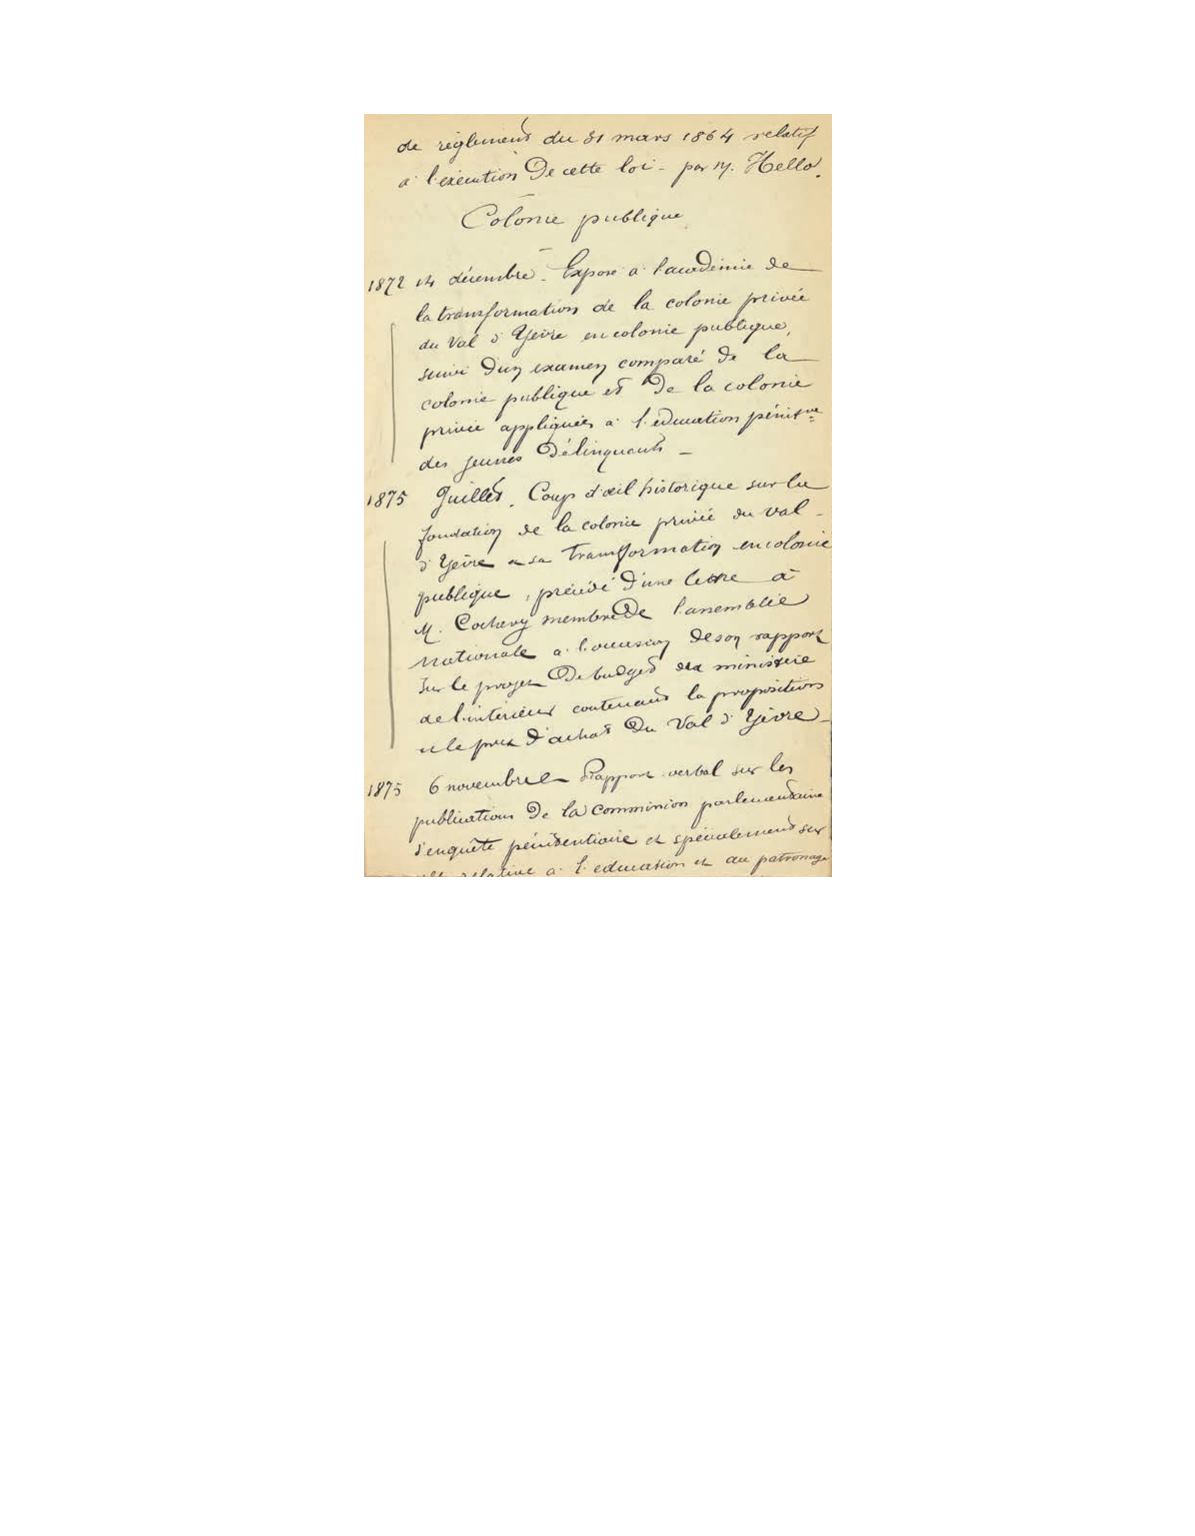 de réglement du 31 mars 1864 relatif
à l'exécution de cette loi - par M. Hello.
Colonie publique
1872 14 décembre. Exposé à l'académie de
la transformation de la colonie privée
du Val d'Yèvre en colonie publique,
suivi d'un examen comparé de la
colonie publique et de la colonie
privée appliquées à l'éducation pénit^re
des jeunes délinquants -
1875 Juillet. Coup d'œil historique sur la
fondation de la colonie privée du val
d'Yèvre & sa transformation en colonie
publique, précédé d'une lettre à
M. Cochery membre de l'assemblée
nationale à l'occasion de son rapport
sur le projet de budget du ministère
de l'intérieur contenant la proposition
et le prix d'achat du Val d'Yèvre -
1875 6 novembre Rapport verbal sur les
publications de la commission parlementaire
d'enquête pénitentiaire et spécialement sur
relative à l'éducation et au patronage